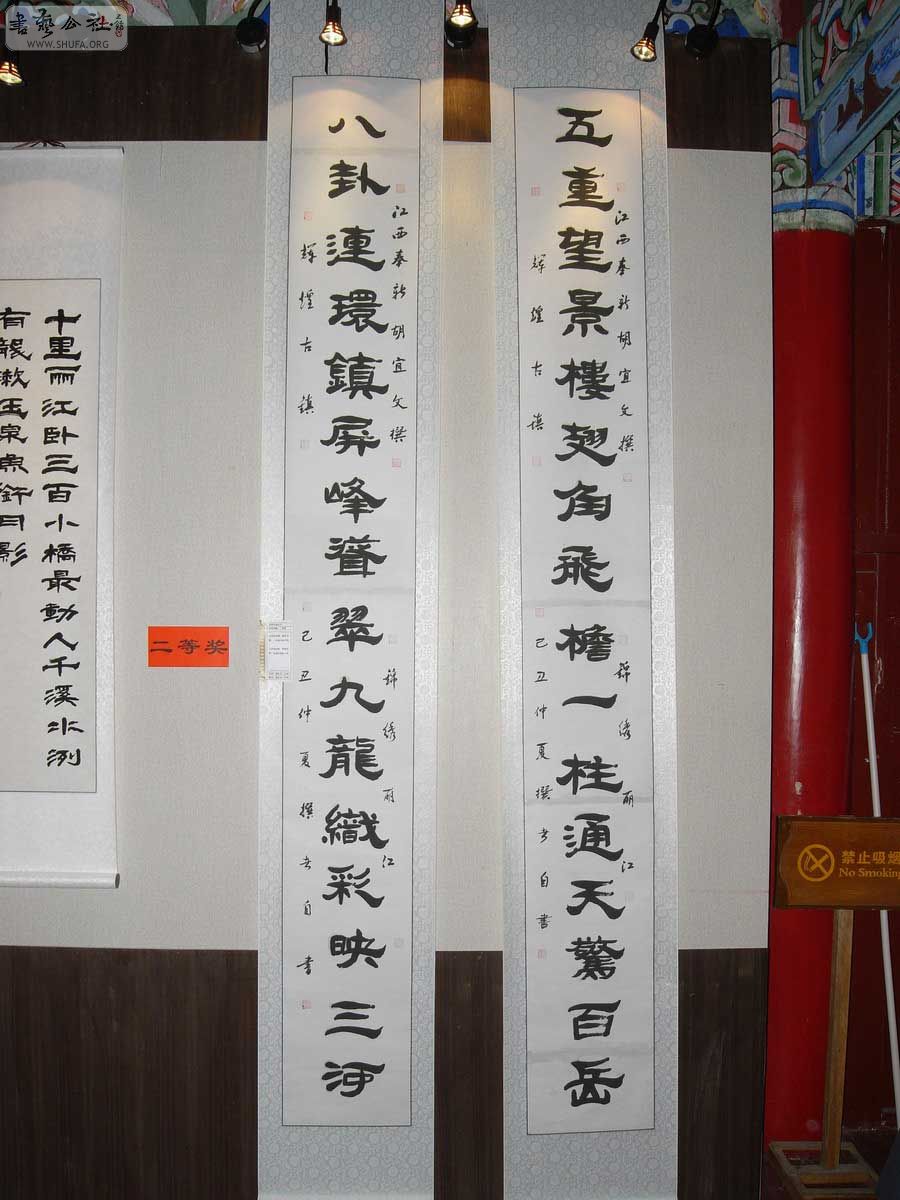 書藝公社
WWW.SHUFA.ORG
五重望景樓翅角飛檐一柱通天驚百岳
江西奉新胡宜文撰
輝煌古鎮
錦绣丽江
己丑仲夏撰書自書
八卦連環鎮屏峰聳翠九龍織彩映三河
江西奉新胡宜文撰
輝煌古鎮
錦绣丽江
己丑仲夏撰書自書
二等奖
十里丽江卧三百小橋最動人千溪水冽
禁止吸烟
No Smoking